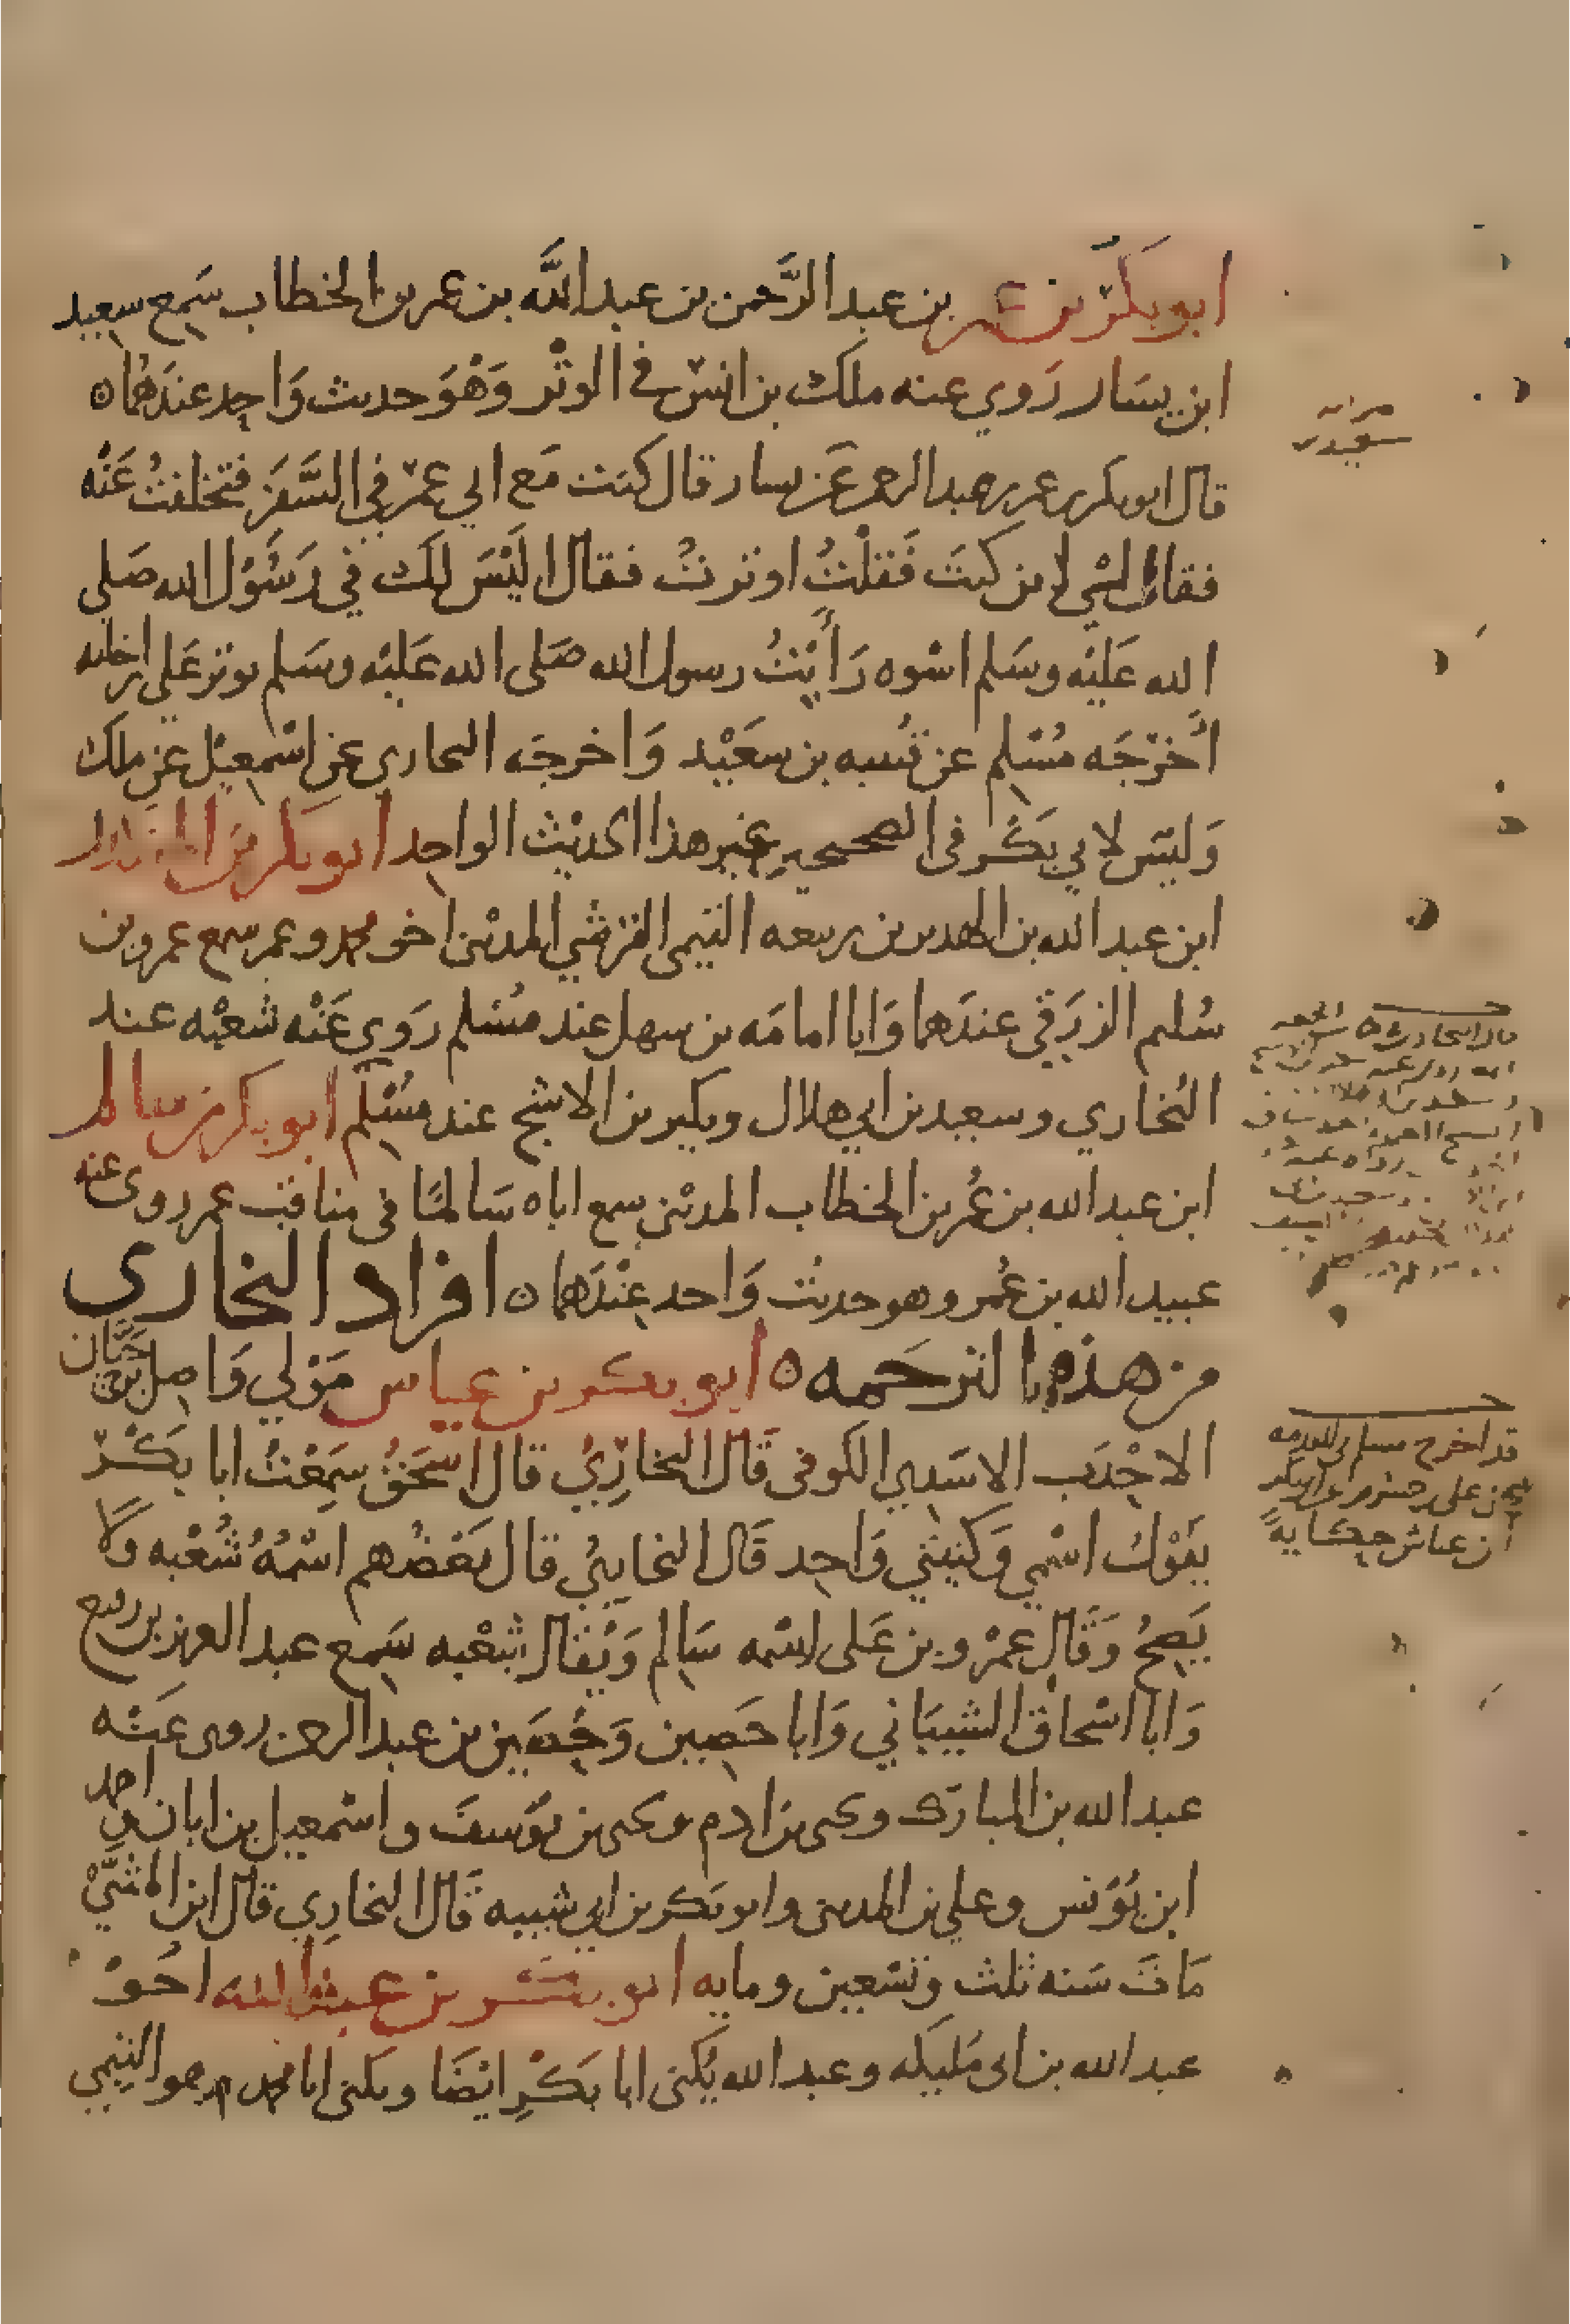 ابو بكر بن عمر بن عبد الرَّحمن بن عبد اللَّه بن عمر بن الخطاب سَمِع سعيد
ابن يسَار رَوي عنه ملك بن انس في الوتْر وَهْوَ حديث وَاحِد عندَهُما ه
قال ابو بكر بن عمر بن عبد الرحمن عَن يسار قال كنت مَع ابي عمَر في السَّفَر فتخلفتُ عَنْه
فقال لي اين كنتَ فَقلْتُ اوترتُ فقال اليْسَ لك في رَسُوْل الله صَلى
الله عَليْه وسَلم اسْوه رَأيْتُ رسول الله صَلى الله عَليْه وسَلم يوتر عَلى راحلته
أخرَجَه مُسْلم عن قتيبه بن سعَيْد وَاخرجَه البخارى عن اسْمعِيْل عن ملك
وَليسَ لابي بَكْر فى الصحيحين غير هذا الحديْث الواحِد ابو بكر بن المنكدر
ابن عبد الله بن الهدير بن ربيعه التيمى القرشي المدني اخو محمد وعمر سمع عمرو بن
سُليم الزرَقي عندَهما وَابا امامَه بن سهل عند مسْلم رَوي عَنْه شعْبه عند
البُخاري وسعيد بن ابي هلال وبكير بن الاشج عند مسْلم ابو بكر بن سالم
ابن عبد الله بن عُمر بن الخطاب المدنْي سمع اباه سَالمًا فى مناقب عمر روى عنه
عبيد الله بن عُمر وهو حديث وَاحد عِنْدَهما ه افراد البخارى
من هذه الترجَمه ه ابو بكر بن عياس مَوْلي وَاصِل بن حَيَّان
الاحْدَب الاسَدِي الكوفى قَال البخارِيُ قال اسْحَقُ سَمِعْتُ ابا بَكْر
يَقوْل اسْمي وَكنيتي وَاحِد قَال البخاريُ قال بَعْضُهم اسْمُهُ شُعْبه وَلَا
يَصِحُ وَقَال عمْرو بن عَلى اسْمه سَالم وَيُقَال شعْبه سَمِع عبد العزيز بن رفيع
وَابا اسْحاق الشيبَاني وَابا حَصِين وَحُصَين بن عبد الرحمن روى عَنْه
عبد الله بن المبارَك ويحيى بن ادم ويحيى بن يوْسفَ واسْمعيل بن ابان واحمد
ابن يوْنس وعلي بن المديني وابو بَكر بن ابي شيبه قَال البخارِي قال ابن المثنَّي
مَاتَ سَنه ثلث وتسْعِين ومايه ابو بكر بن عبد الله اخُوْ
عبد الله بن ابى مُليكه وعبد الله يُكنى ابا بَكْرِ ايْضَا ويكنى ابا محمد وهو التيْمي
قد اخرج مسلم في المقدمه
عن علي بن خشرم عن ابي بكر
ابن عياش حِكايةً